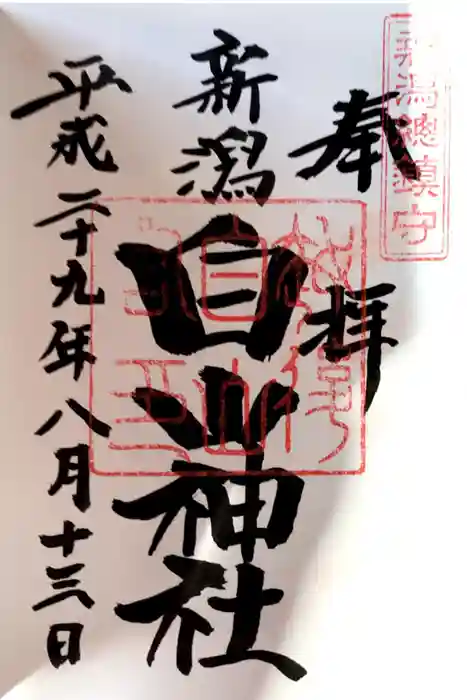 新潟總鎮守
奉拝
新潟
白山神社
平成二十九年八月十三日